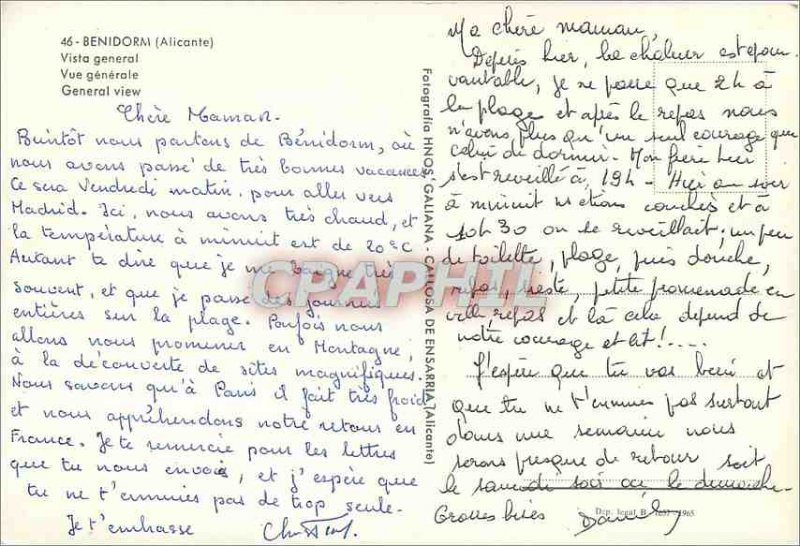 46 - BENIDORM (Alicante)
Vista general
Vue générale
General view
Chère Maman.
Bientôt nous partons de Bénidorm, où
nous avons passé de très bonnes vacances
Ce sera Vendredi matin, pour aller vers
Madrid. Ici, nous avons très chaud, et
la température à minuit est de 20°C
Autant te dire que je me baigne très
souvent, et que je passe des journées
entières sur la plage. Parfois nous
allons nous promener en Montagne,
à la découverte de sites magnifiques.
Nous savons qu'à Paris il fait très froid
et nous appréhendons notre retour en
France. Je te remercie pour les lettres
que tu nous envoie, et j'espère que
tu ne t'ennuies pas de trop seule.
Je t'embrasse
Fotografía HNOS. GALIANA - CALLOSA DE ENSARRIA (Alicante)
Ma chère maman,
Depuis hier, la chaleur est épou
vantable, je ne passe que 2h à
la plage et après le repas nous
n'avons plus qu'un seul courage que
celui de dormir. Mon frère hier
s'est reveillé à 19h - Hier au soir
à minuit nous étions couchés et à
10h 30 on se reveillait; un peu
de toilette, plage, puis douche,
repas, sieste, petite promenade en
ville repas et là cela depend de
notre courage et lit!....
J'espère que tu vas bien et
que tu ne t'ennuies pas surtout
dans une semaine nous
serons presque de retour soit
le samedi soir ou le dimanche.
Grosses bises
Dep. legal B. 1965
CPARHIL